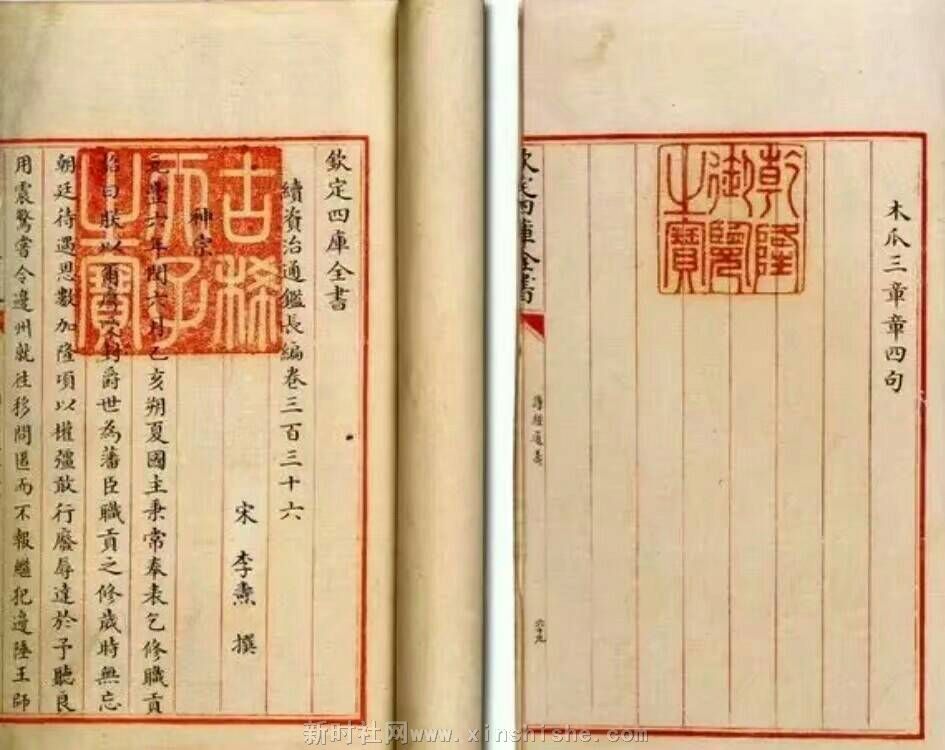 欽定四庫全書
續資治通鑑長編卷三百三十六
宋 李燾 撰
神宗
元豐六年閏六月乙亥朔夏國主秉常奉表乞修職貢
詔曰朕以爾膺受封爵世為藩臣職貢之修歲時無忘
朝廷待遇恩數加隆項以權彊敢行廢辱達於予聽良
用震驚嘗令邊州就往移問匿而不報繼犯邊陲王師
古稀天子之寶
木瓜三章章四句
乾隆御覽之寶
欽定四庫全書
詩經通義
六十九
新时社网www.xinshishe.com